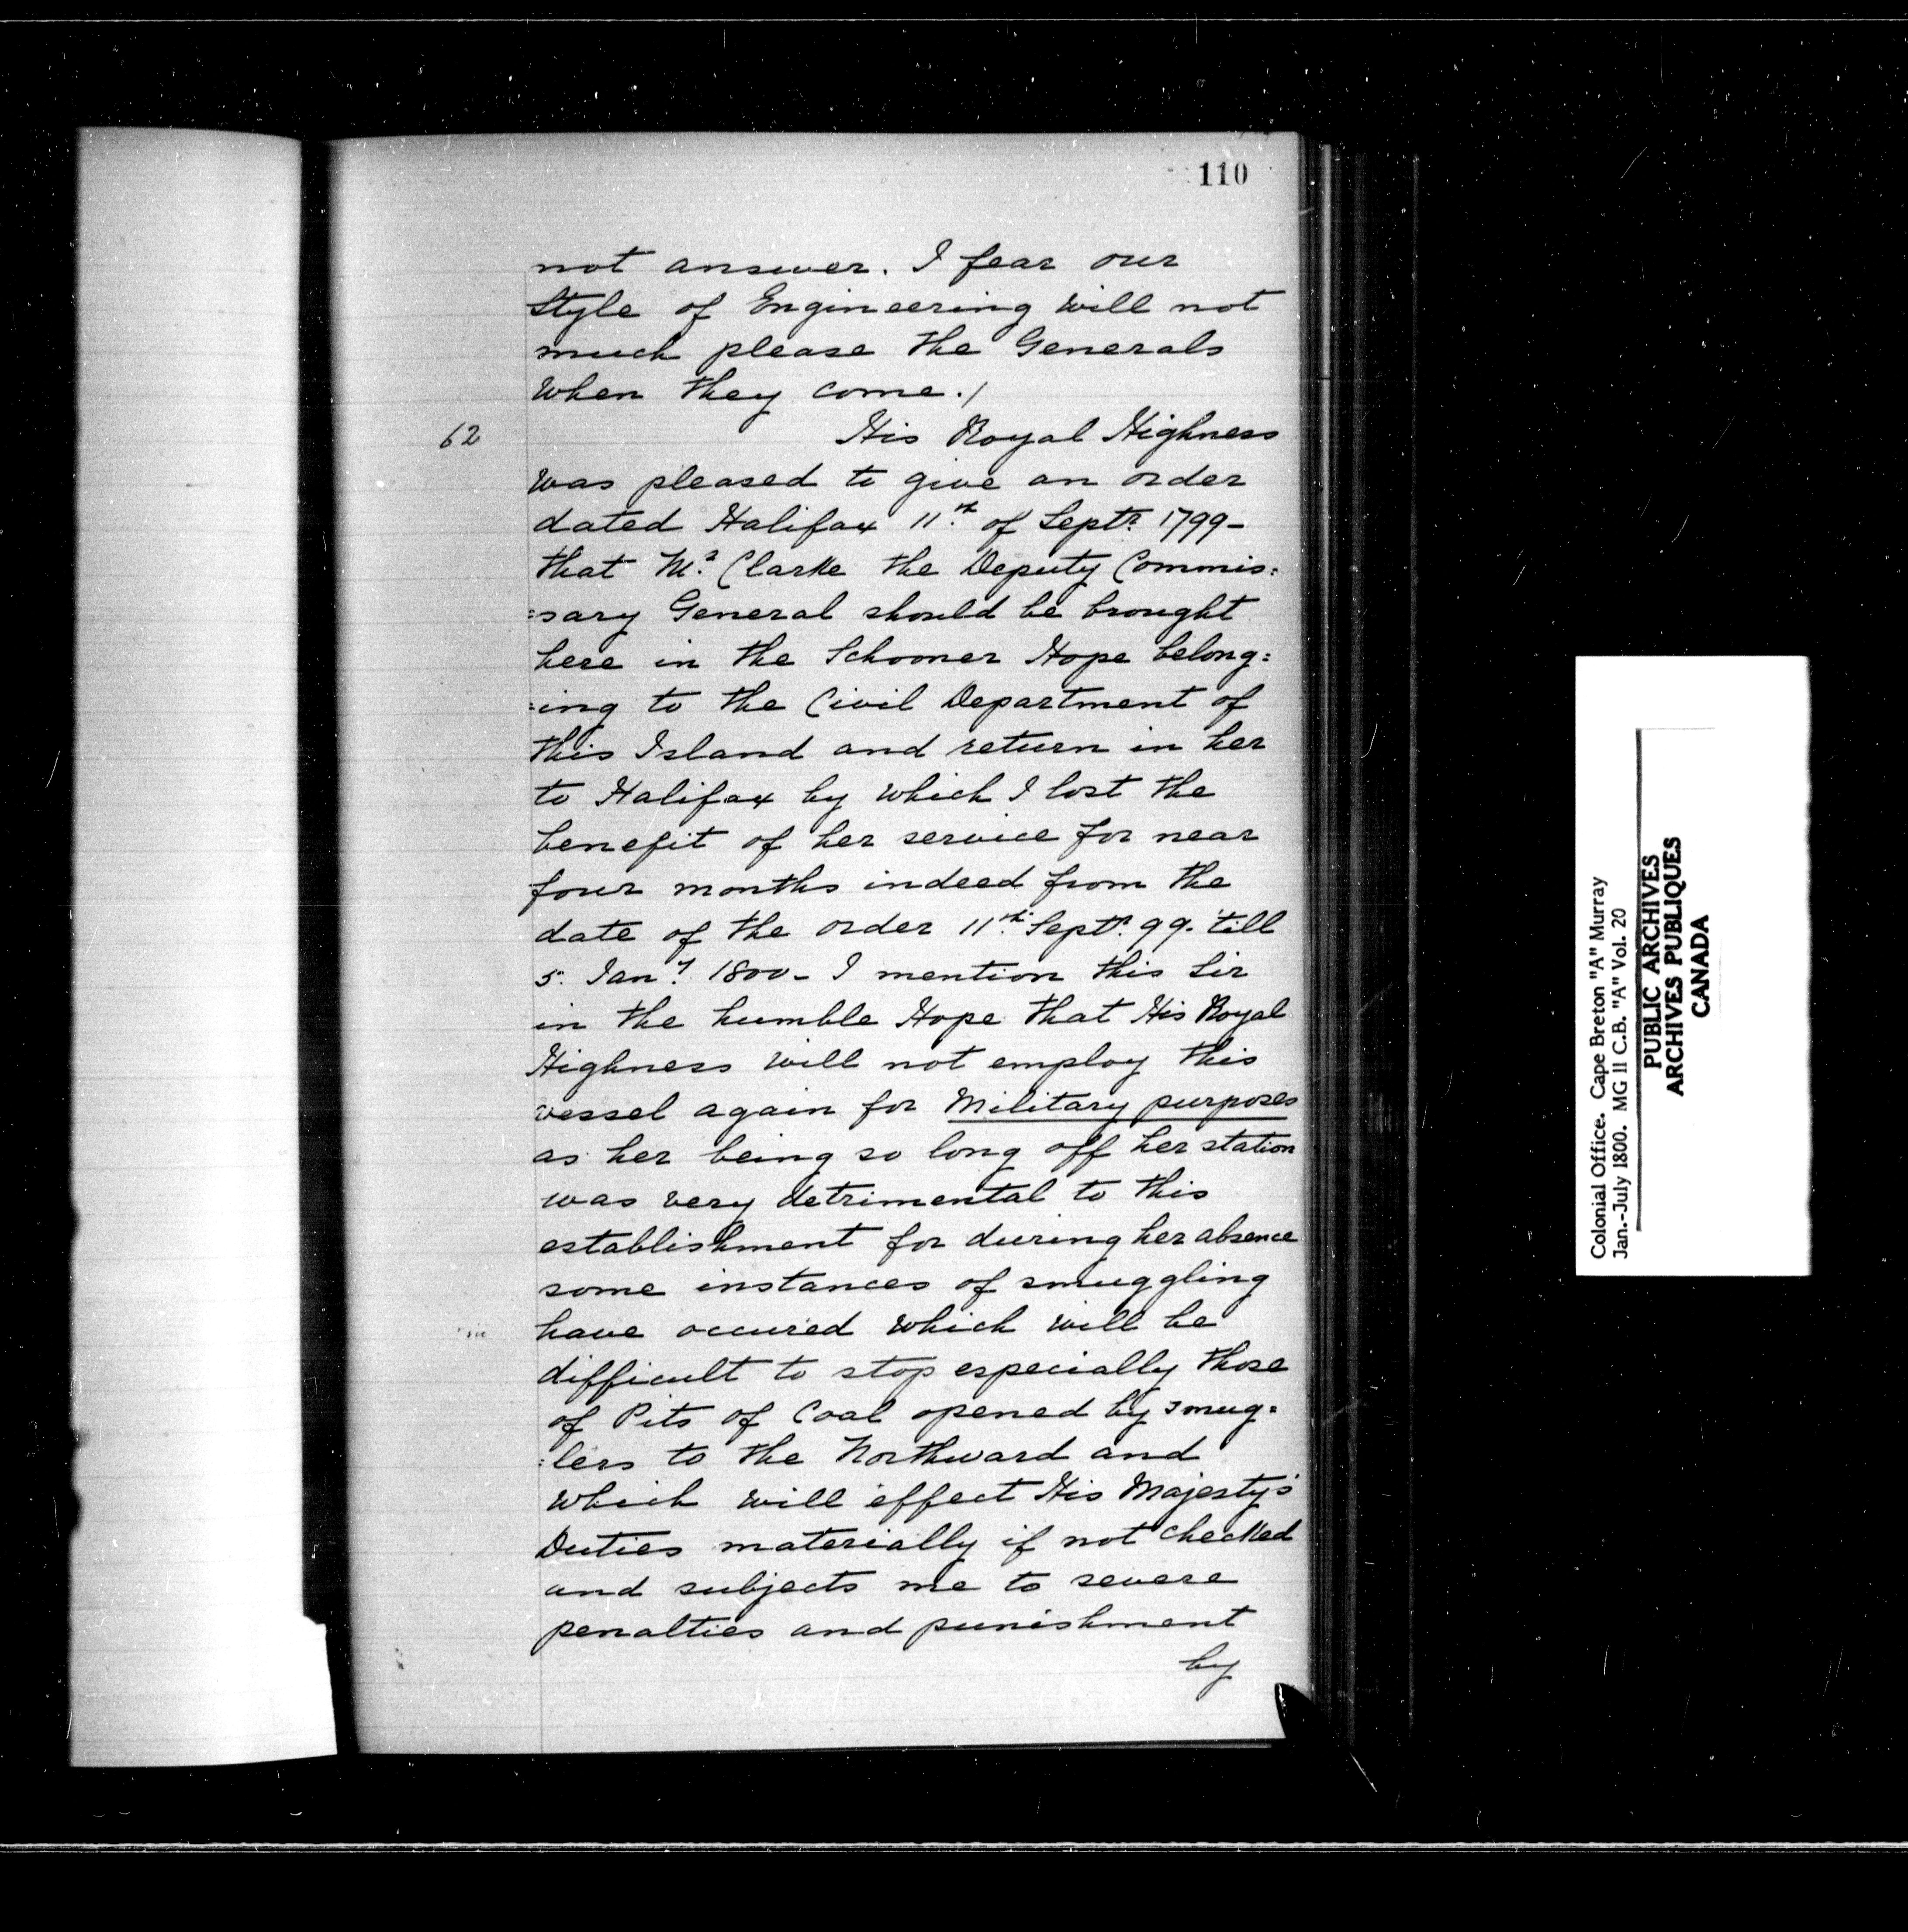 110
not answer. I fear our
Style of Engineering will not
much please the Generals
when they come./
62
His Royal Highness
was pleased to give an order
dated Halifax 11th of Septr 1799-
that Mr Clarke the Deputy Commis:
:sary General should be brought
here in the Schooner Hope belong:
:ing to the Civil Department of
this Island and return in her
to Halifax by which I lost the
benefit of her service for near
four months indeed from the
date of the order 11th Septr. 99. till
5. Jany. 1800- I mention this Sir
in the humble Hope that His Royal
Highness will not employ this
vessel again for Military purposes
as her being so long off her station
was very detrimental to this
establishment for during her absence
some instances of smuggling
have occured which will be
difficult to stop especially those
of Pits of Coal opened by smug:
:lers to the Northward and
which will effect His Majesty's
Duties materially if not checked
and subjects me to severe
penalties and punishment
by
Colonial Office. Cape Breton "A" Murray
Jan.-July 1800. MG 11 C.B. "A" Vol. 20
PUBLIC ARCHIVES
ARCHIVES PUBLIQUES
CANADA